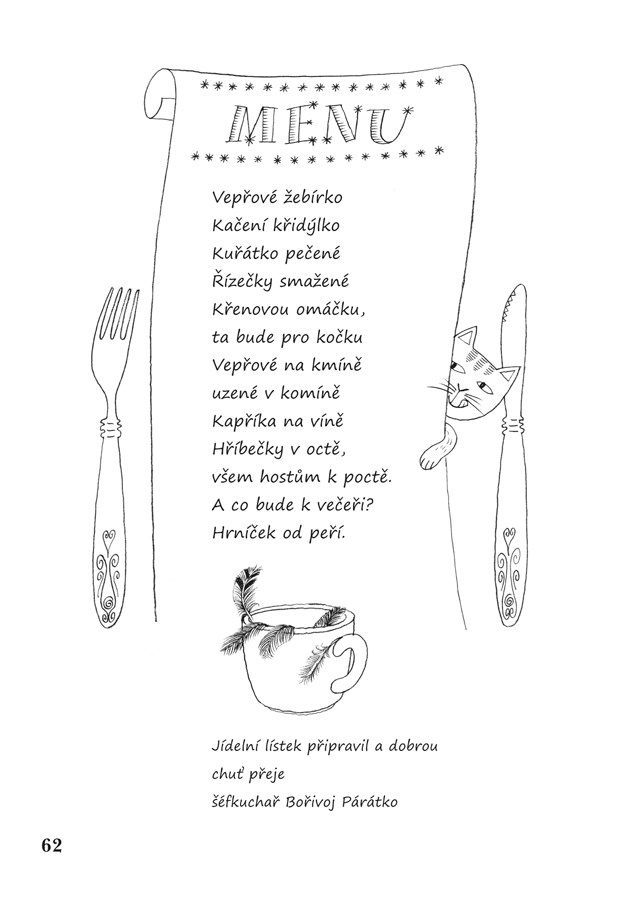 MENU
Vepřové žebírko
Kačení křidýlko
Kuřátko pečené
Řízečky smažené
Křenovou omáčku,
ta bude pro kočku
Vepřové na kmíně
uzené v komíně
Kapříka na víně
Hříbečky v octě,
všem hostům k poctě.
A co bude k večeři?
Hrníček od peří.
Jídelní lístek připravil a dobrou
chuť přeje
šéfkuchař Bořivoj Párátko
62